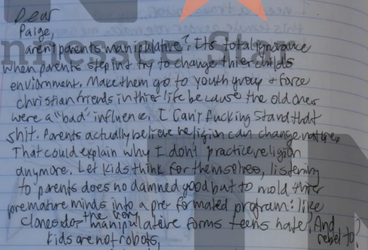 Dear
Paige,
arent parents manipulative? Its total ignorance
when parents step in + try to change thier childs
enviornment. Make them go to youth group + force
christian friends in thier life because the old ones
were a "bad" influence. I can't fucking stand that
shit. Parents actually believe religion can change nature,
That could explain why I don't practice religion
anymore. Let kids think for themselves, listening
to parents does no damned good but to mold thier
premature minds into a pre formated program: like
clones or the very manipulative forms teens hate, And rebel to,
kids are not robots,